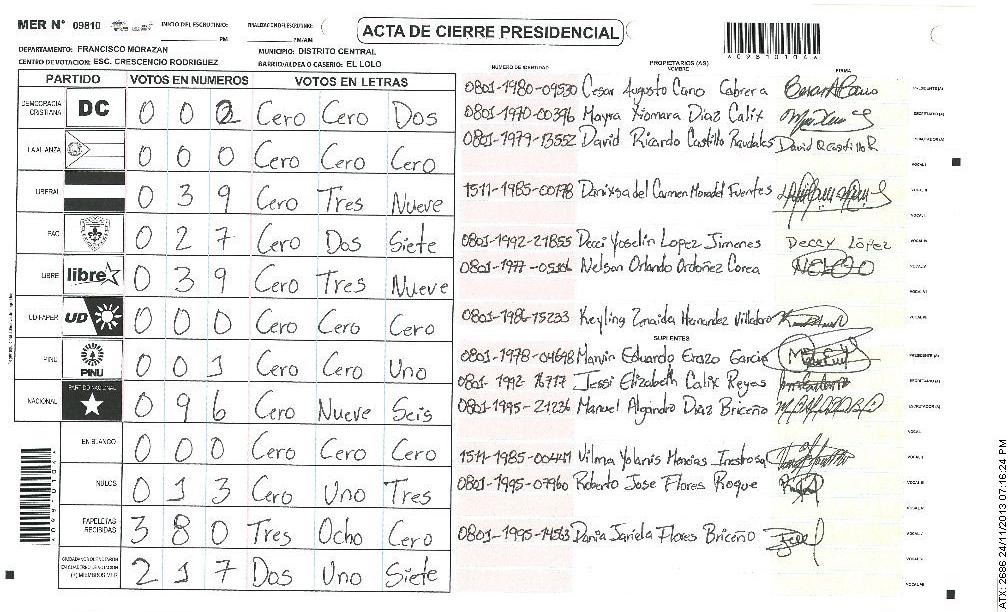 MER N° 09810 INICIO DEL ESCRUTINIO: PM FINALIZACION DEL ESCRUTINIO: PM/AM ACTA DE CIERRE PRESIDENCIAL
DEPARTAMENTO: FRANCISCO MORAZAN MUNICIPIO: DISTRITO CENTRAL
CENTRO DE VOTACION: ESC. CRESCENCIO RODRIGUEZ BARRIO/ALDEA O CASERIO: EL LOLO
PARTIDO VOTOS EN NUMEROS VOTOS EN LETRAS
NUMERO DE IDENTIDAD PROPIETARIOS (AS) NOMBRE FIRMA
DEMOCRACIA CRISTIANA DC 0 0 2 Cero Cero Dos
LA ALIANZA 0 0 0 Cero Cero Cero
LIBERAL 0 3 9 Cero Tres Nueve
PAC 0 2 7 Cero Dos Siete
LIBRE libre 0 3 9 Cero Tres Nueve
UD-FAPER UD 0 0 0 Cero Cero Cero
PINU PINU 0 0 1 Cero Cero Uno
NACIONAL PARTIDO NACIONAL 0 9 6 Cero Nueve Seis
EN BLANCO 0 0 0 Cero Cero Cero
NULOS 0 1 3 Cero Uno Tres
PAPELETAS RECIBIDAS 3 8 0 Tres Ocho Cero
2 1 7 Dos Uno Siete
0801-1980-09530 Cesar Augusto Cano Cabrera PRESIDENTE(A)
0801-1970-00396 Mayra Xiomara Diaz Calix SECRETARIO(A)
0801-1979-13552 David Ricardo Castillo Raudales David R Castillo R ESCRUTADOR(A)
VOCAL I
1511-1985-00178 Danixsa del Carmen Moradel Fuentes VOCAL II
0801-1992-21855 Decci Yoselin Lopez Jimenes Deccy López
Nelson Orlando Ordoñez Corea NELSO
0801-1986-15233 Keyling Zonaida Hernandez Villatoro
SUPLENTES
0801-1978-04698 Marvin Eduardo Erazo Garcia PRESIDENTE(A)
0801-1992-16717 Jessi Elizabeth Calix Reyes SECRETARIO(A)
0801-1995-21236 Manuel Algandro Diaz Briceño ESCRUTADOR(A)
VOCAL I
1511-1985-00441 Vilma Yolanis Mencias Inestrosa VOCAL II
0801-1995-07960 Roberto Jose Flores Roque VOCAL III
0801-1995-14563 Dania Jariela Flores Briceño
ATX: 2686 24/11/2013 07:16:24 PM